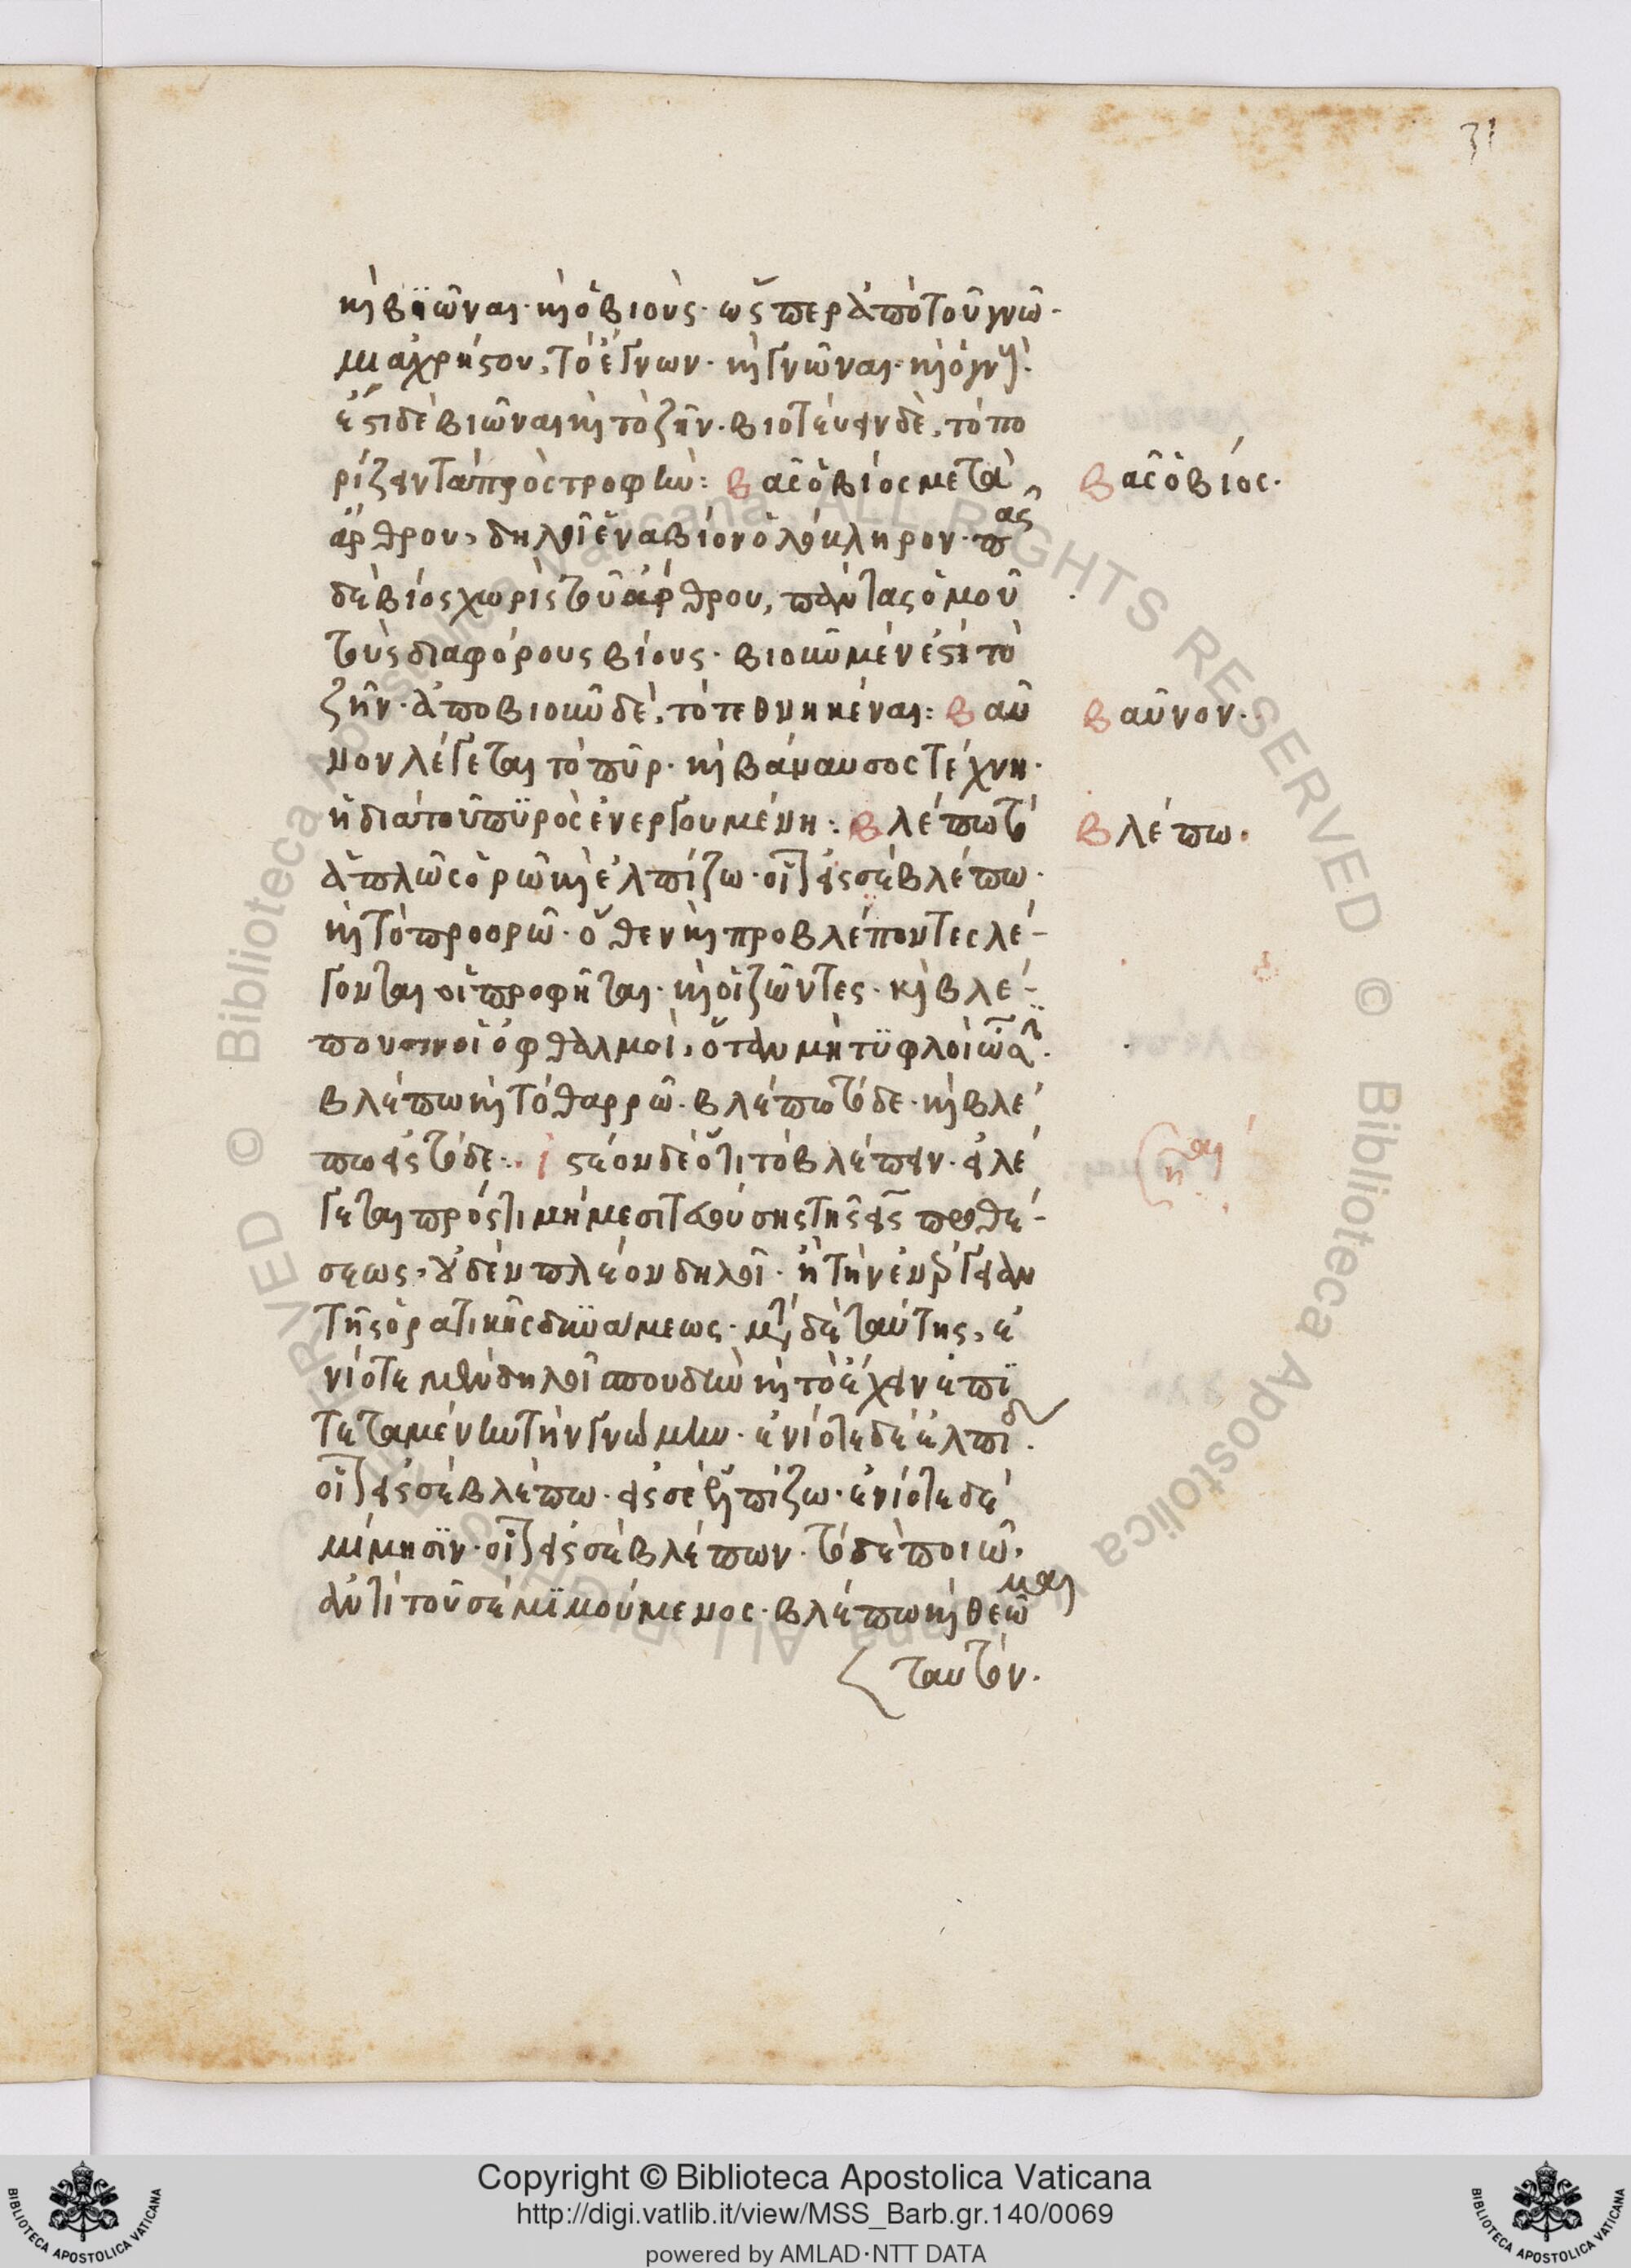 31
καὶ βιῶναι· καὶ ὁ βιούς· ὥσπερ ἀπὸ τοῦ γνῶ·
μι ἀχρήστου, τὸ ἔγνων· καὶ γνῶναι· καὶ ὁ γνούς·
ἔστι δὲ βιῶναι καὶ τὸ ζῆν· βιοτεύειν δὲ, τὸ πο
ρίζειν τὰ πρὸς τροφήν: Βας ὁ βίος μετὰ
Βας ὁ βίος·
ἄρθρου, δηλοῖ ἕνα βίον ὁλόκληρον· πᾶς
δὲ βίος χωρὶς τοῦ ἄρθρου, πάντας ὁμοῦ
τοὺς διαφόρους βίους· βιοῦν μέν ἐστι τὸ
ζῆν· ἀποβιοῦν δὲ, τὸ τεθνηκέναι: Βαῦ
Βαῦνον·
νον λέγεται τὸ πῦρ· καὶ βάναυσος τέχνη·
ἡ διὰ τοῦ πυρὸς ἐνεργουμένη: Βλέπω τὸ
Βλέπω·
ἁπλῶς ὁρῶ καὶ ἐλπίζω· οἷον εἰς σὲ βλέπω·
καὶ τὸ προορῶ· ὅθεν καὶ προβλέποντες λέ-
γονται οἱ προφῆται· καὶ οἱ ζῶντες· καὶ βλέ-
πουσιν οἱ ὀφθαλμοὶ, ὅταν μὴ τυφλοὶ ὦσι·
βλέπω καὶ τὸ θαρρῶ· βλέπω τόδε· καὶ βλέ
πω εἰς τόδε: ἰστέον δὲ ὅτι τὸ βλέπειν· εἰ λέ
γεται πρός τι μὴ μεσιτευούσης τῆς εἰς προθέ-
σεως, οὐδὲν πλέον δηλοῖ· ἢ τὴν ἐνέργειαν
τῆς ὁρατικῆς δυνάμεως· μετὰ δὲ ταύτης, ἐ
νίοτε μὲν δηλοῖ σπουδὴν καὶ τὸ ἔχειν ἐπι
τεταμένην τὴν γνώμην· ἐνίοτε δὲ ἐλπίδα·
οἷον εἰς σὲ βλέπω· εἰς σὲ ἐλπίζω· ἐνίοτε δὲ
μίμησιν· οἷον εἰς σὲ βλέπων· τόδε ποιῶ,
ἀντὶ τοῦ σὲ μιμούμενος· βλέπω καὶ θεῶμαι
ταυτόν·
Copyright © Biblioteca Apostolica Vaticana
http://digi.vatlib.it/view/MSS_Barb.gr.140/0069
powered by AMLAD·NTT DATA